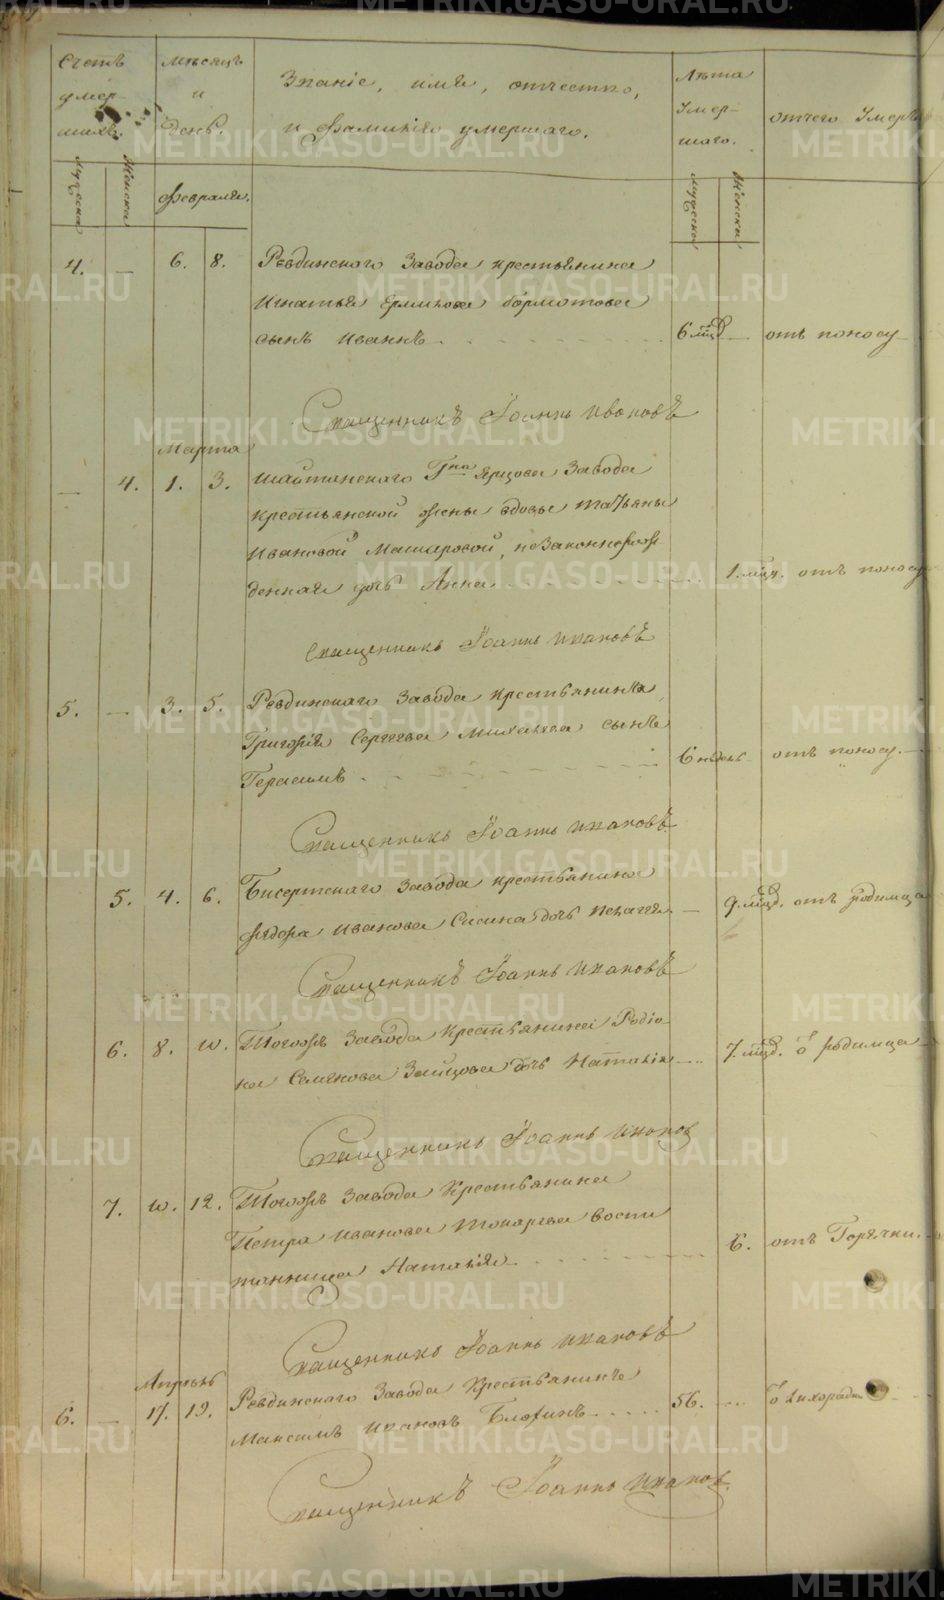 METRIKI.GASO-URAL.RU
Счетъ умер- шихъ.
Мѣсяцъ и день.
Званіе, имя, отчество,
и фамилія умершаго.
Лѣта умер- шаго.
отчего умеръ
Мужеска
Женска
Февраля.
Мужеска
Женска
4. — 6. 8. Ревдинскаго Завода крестьянина
Игнатья Ермилова Бормотова
сынъ Иванъ 6 мцд — отъ поносу
Священникъ Іоаннъ Ивановъ
Марта
— 4. 1. 3. Шайтанскаго Гна Ярцова Завода
крестьянской жены вдовы Татьяны
Ивановой Макаровой, незаконнорож-
денная дочь Анна 1. мцд. отъ поносу
Священникъ Іоаннъ Ивановъ
5. — 3. 5. Ревдинскаго Завода крестьянина
Григорія Сергеева сынъ
Герасимъ 6 недель отъ поносу.
Священникъ Іоаннъ Ивановъ
5. 4. 6. Бисертскаго Завода крестьянина
Федора Иванова Сысина дочь Пелагея — 9. мцд. отъ родимца
Священникъ Іоаннъ Ивановъ
6. 8. 10. Тогожъ Завода Крестьянина Родіо-
на Семенова Зайцова дочь Наталія 7. мцд. о родимца
Священникъ Іоаннъ Ивановъ
7. 10. 12. Тогожъ Завода Крестьянина
Петра Иванова Токарева воспи
танница Наталія 6. отъ Горячки.
Священникъ Іоаннъ Ивановъ
Апрель
6. — 17. 19. Ревдинскаго Завода Крестьянинъ
Максимъ Ивановъ Блохинъ 56. о лихорадки
Священникъ Іоаннъ Ивановъ